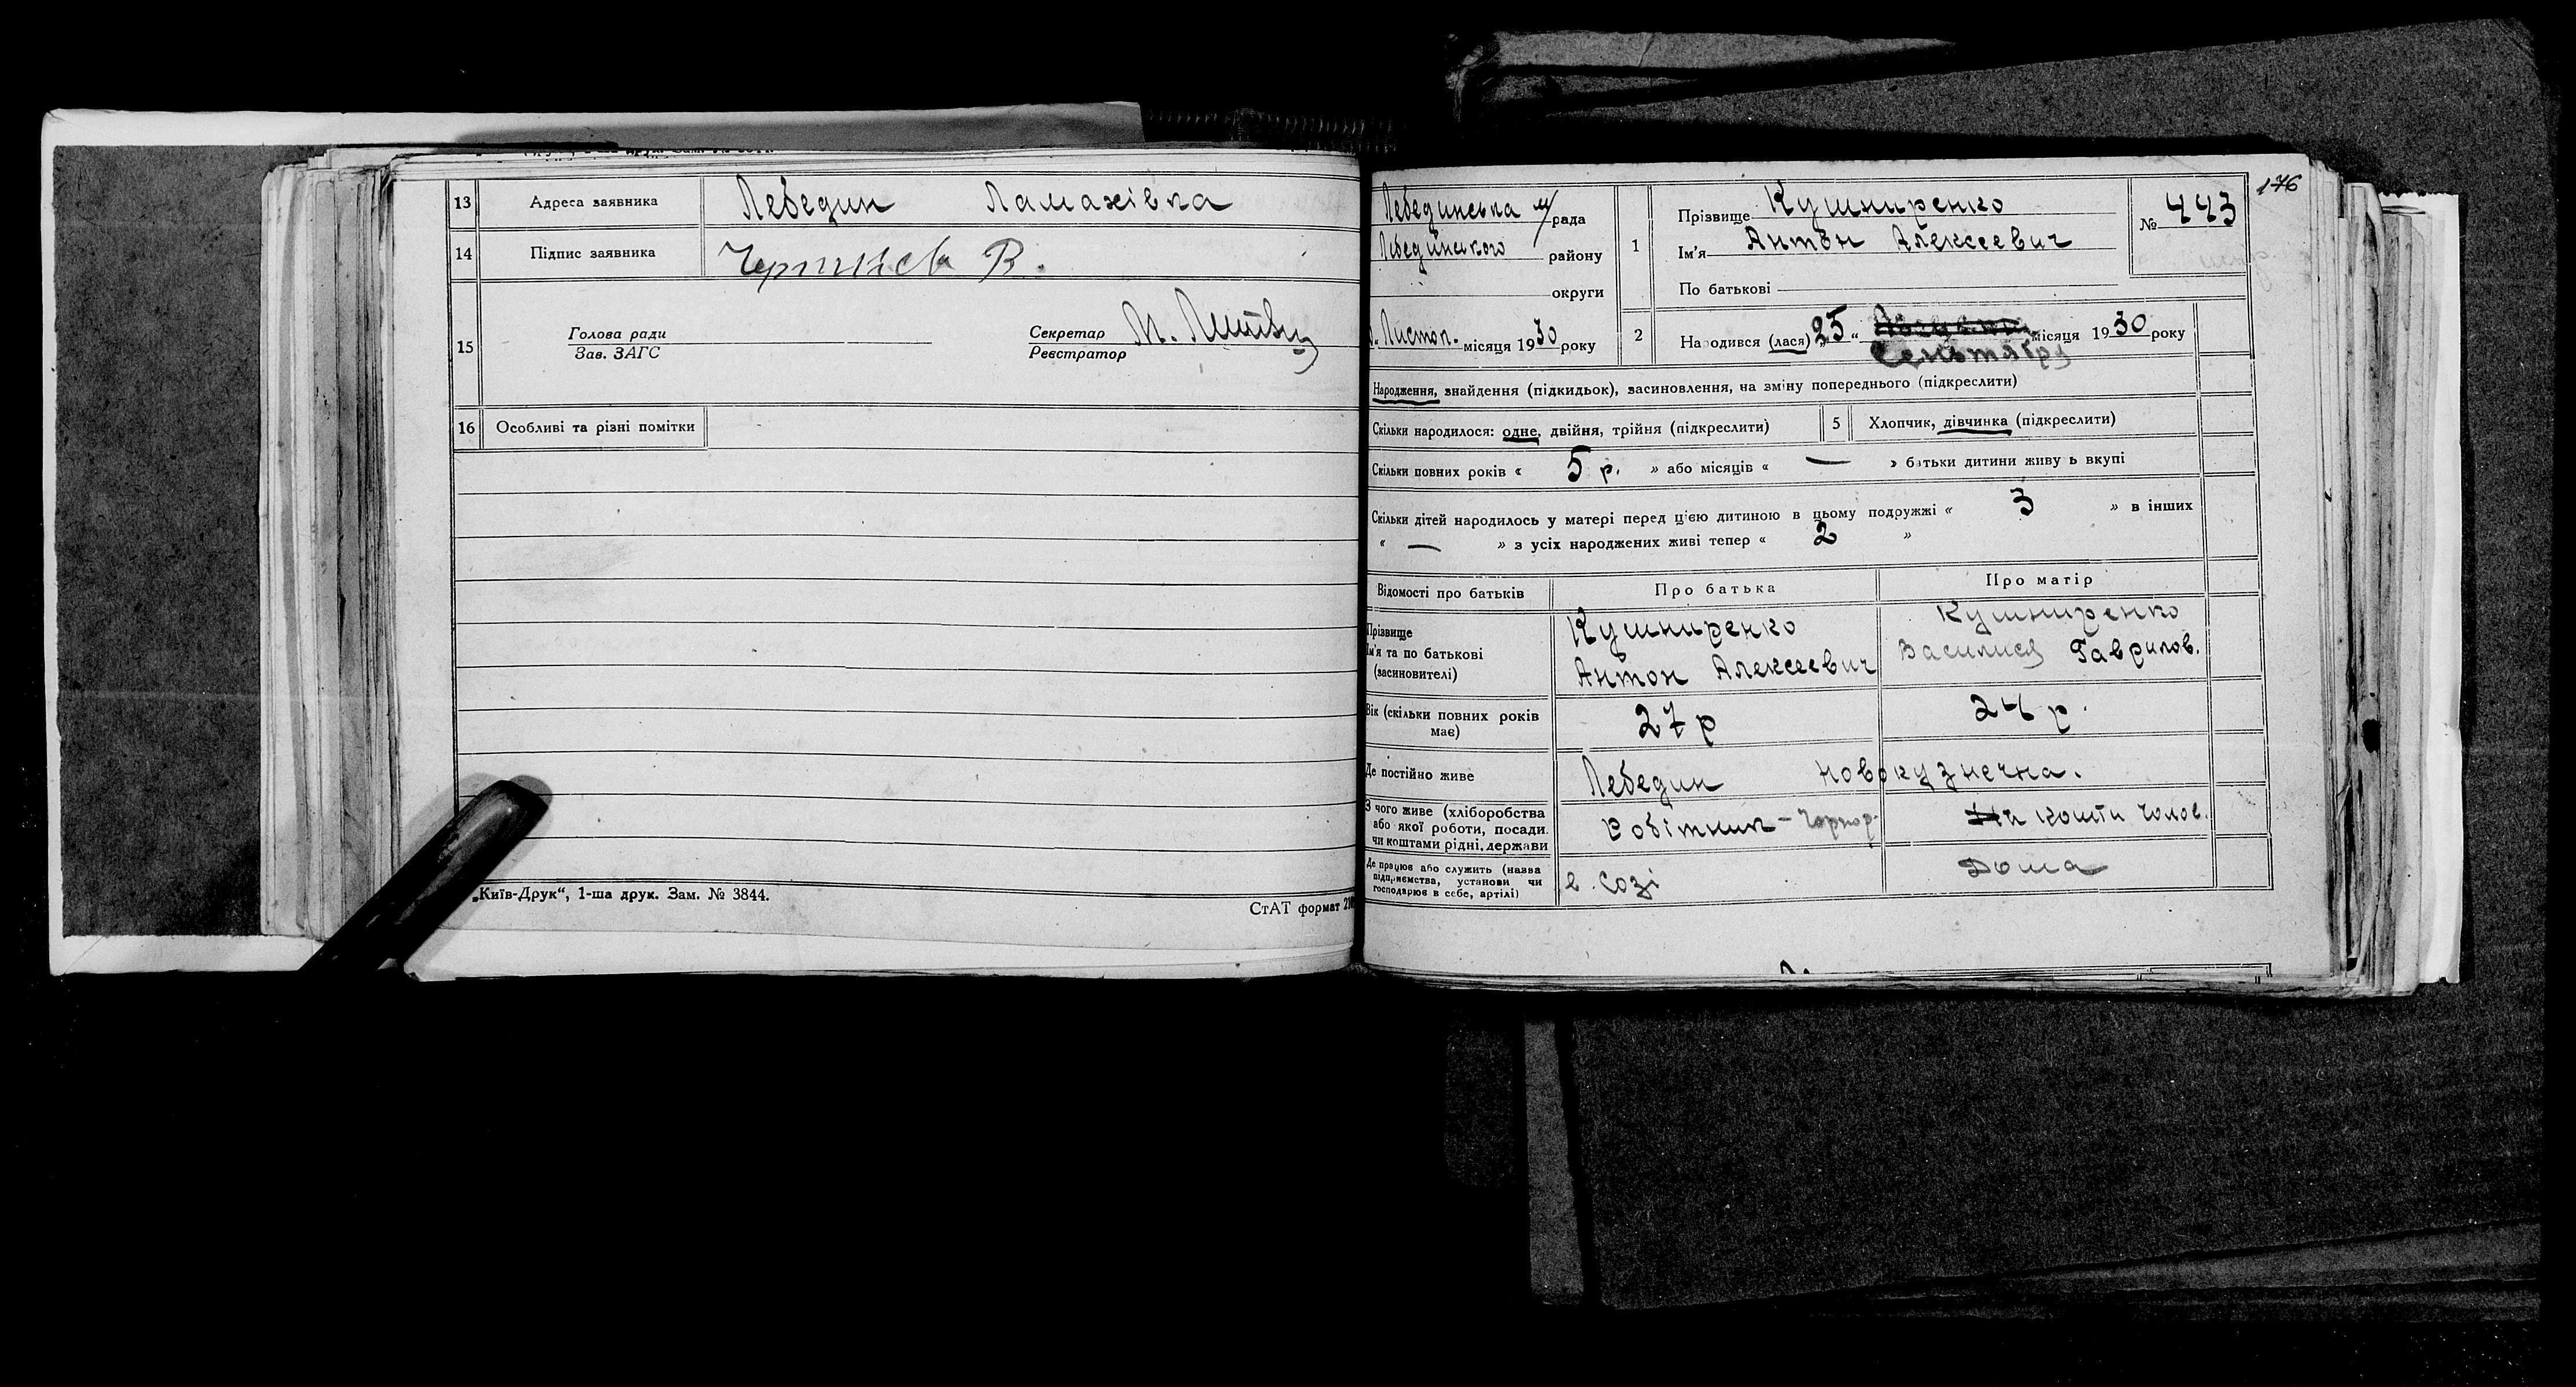 13 Адреса заявника Лебедин Ламахівка
14 Підпис заявника
15 Голова ради
Зав. ЗАГС
Секретар
Реєстратор
16 Особливі та різні помітки
„Київ-Друк“, 1-ша друк. Зам. № 3844.
СтАТ формат
176
Лебединська м/рада
Лебединського району
округи
Листоп. місяця 1930 року
1 Прізвище Кушниренко
Ім'я Антон Алексеевич
По батькові
№ 443
2 Народився (лася) „25“ місяця 1930 року
Сентябрь
Народження, знайдення (підкидьок), засиновлення, на зміну попереднього (підкреслити)
Скільки народилося: одне, двійня, трійня (підкреслити)
5 Хлопчик, дівчинка (підкреслити)
Скільки повних років « 5 р. » або місяців « — » батьки дитини живу ь вкупі
Скільки дітей народилось у матері перед цією дитиною в цьому подружжі « 3 » в інших
« — » з усіх народжених живі тепер « 2 »
Відомості про батьків Про батька Про матір
Прізвище
Ім'я та по батькові
(засиновителі)
Кушниренко
Антон Алексеевич
Кушниренко
Василися Гаврилов.
Вік (скільки повних років
має)
27 р
24 р.
Де постійно живе Лебедин Новокузнечна.
З чого живе (хліборобства
або якої роботи, посади.
чи коштами рідні, держави
Робітник - Чорнор.
кошти чолов.
Де працює або служить (назва
підприємства, установи чи
господарює в себе, артілі)
в. Созі
Дома